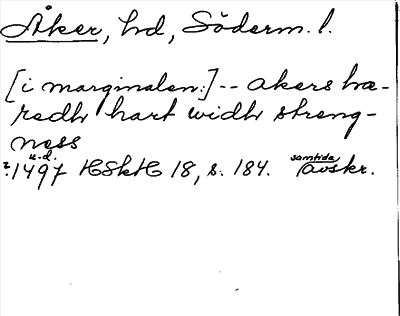 Åker, hd, Söderm. l.
[i marginalen:] -- akers hæ-
redh hart widh streng-
ness
u.d. samtida
? 1497 HSkH 18, s. 184. avskr.